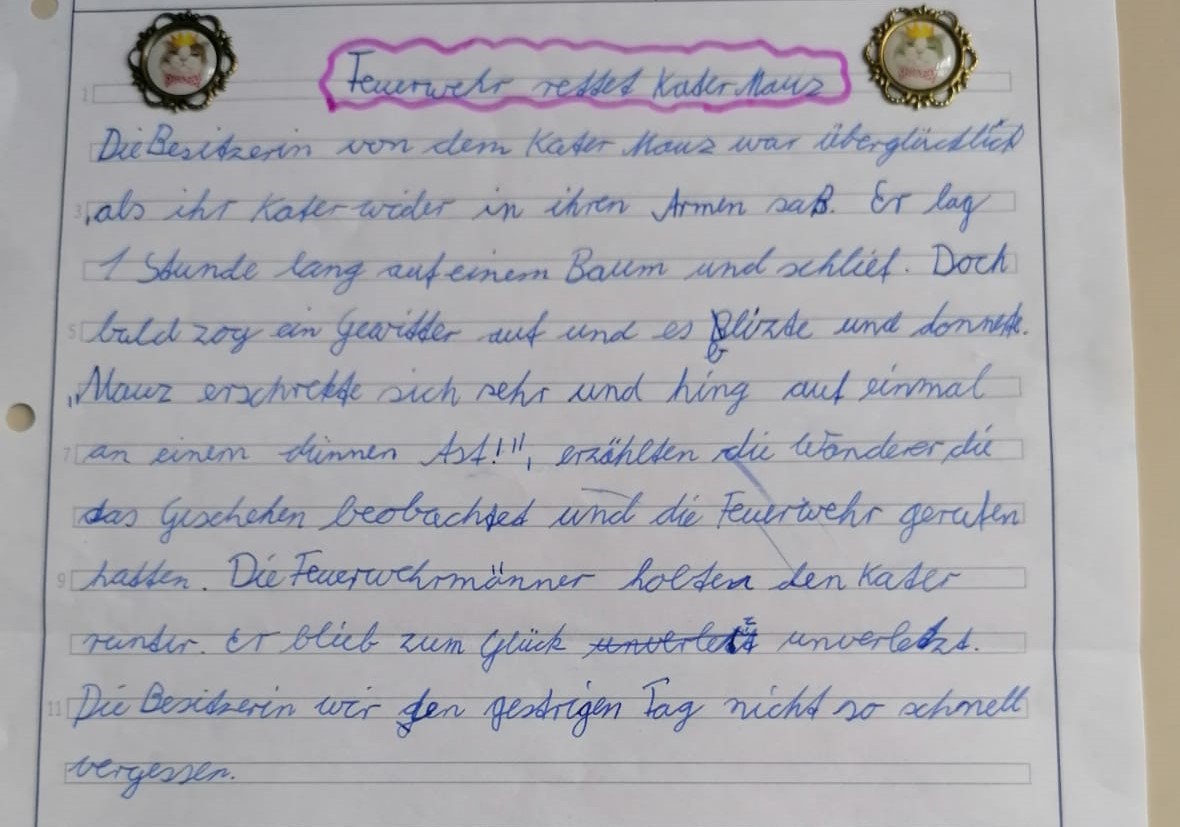 Feuerwehr rettet Kater Mauz
Die Besitzerin von dem Kater Mauz war überglücklich
, als ihr Kater wider in ihren Armen saß. Er lag
1 Stunde lang auf einem Baum und schlief. Doch
bald zog ein Gewitter auf und es blizte und donnerte.
„Mauz erschrekte sich sehr und hing auf einmal
an einem dünnen Ast!", erzählten die Wanderer, die
das Geschehen beobachtet und die Feuerwehr gerufen
hatten. Die Feuerwehrmänner holten den Kater
runter. Er blieb zum Glück unverletzt.
Die Besitzerin wir den gestrigen Tag nicht so schnell
vergessen.